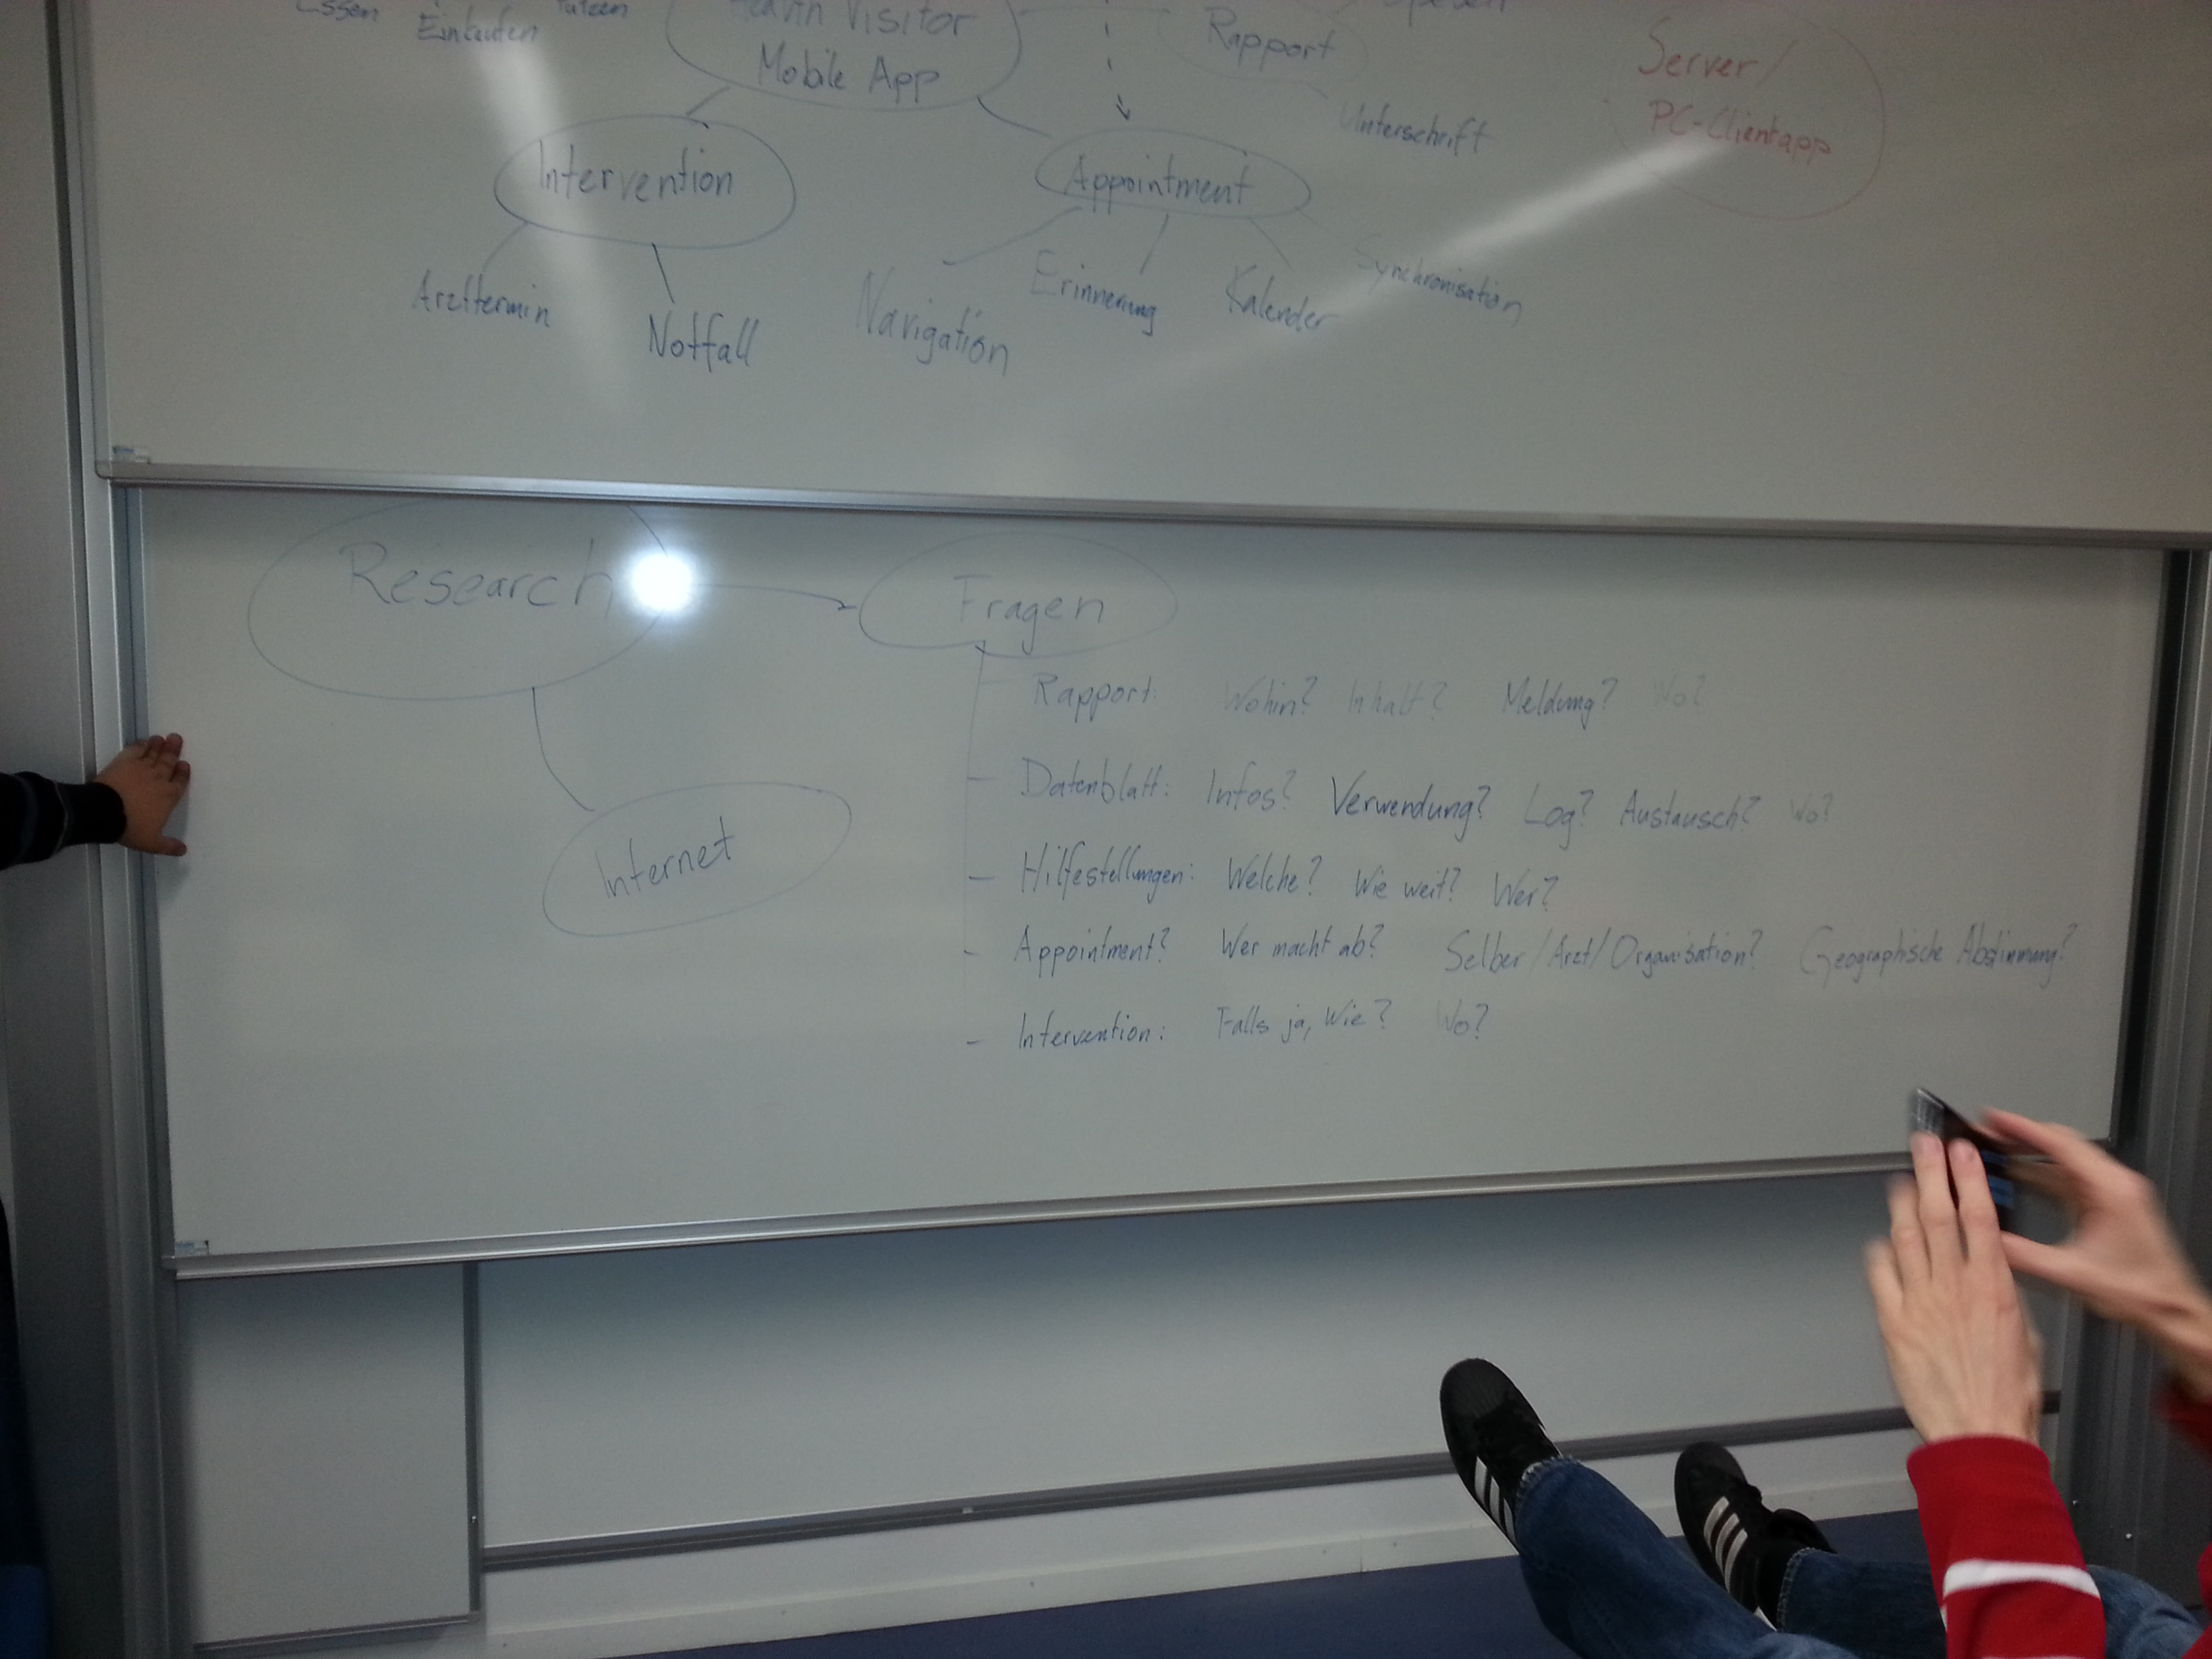 Essen Einkaufen Putzen
Health Visitor
Mobile App
Rapport
Unterschrift
Server/
PC-Clientapp
Intervention
Appointment
Arzttermin
Notfall
Navigation
Erinnerung
Kalender
Synchronisation
Research
Fragen
Internet
Rapport: Wohin? Inhalt? Meldung? Wo?
Datenblatt: Infos? Verwendung? Log? Austausch? Wo?
Hilfestellungen: Welche? Wie weit? Wer?
Appointment? Wer macht ab? Selber/Arzt/Organisation? Geographische Abstimmung?
Intervention: Falls ja, Wie? Wo?